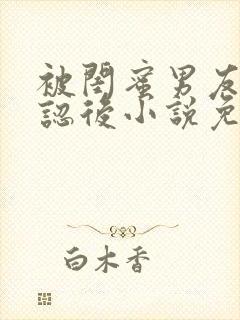 被閨蜜男友
認後小說免
白木香